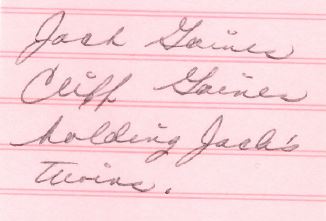 Jack Gaines
Cliff Gaines
holding Jack's
Twins.